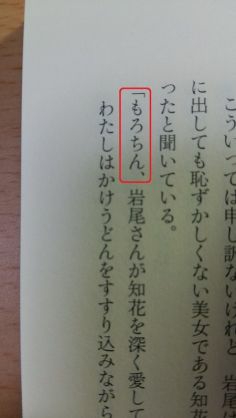 こういっては申し訳ないけれど、岩尾
に出しても恥ずかしくない美女である知花
ったと聞いている。
「もろちん、岩尾さんが知花を深く愛して
わたしはかけうどんをすすり込みながら